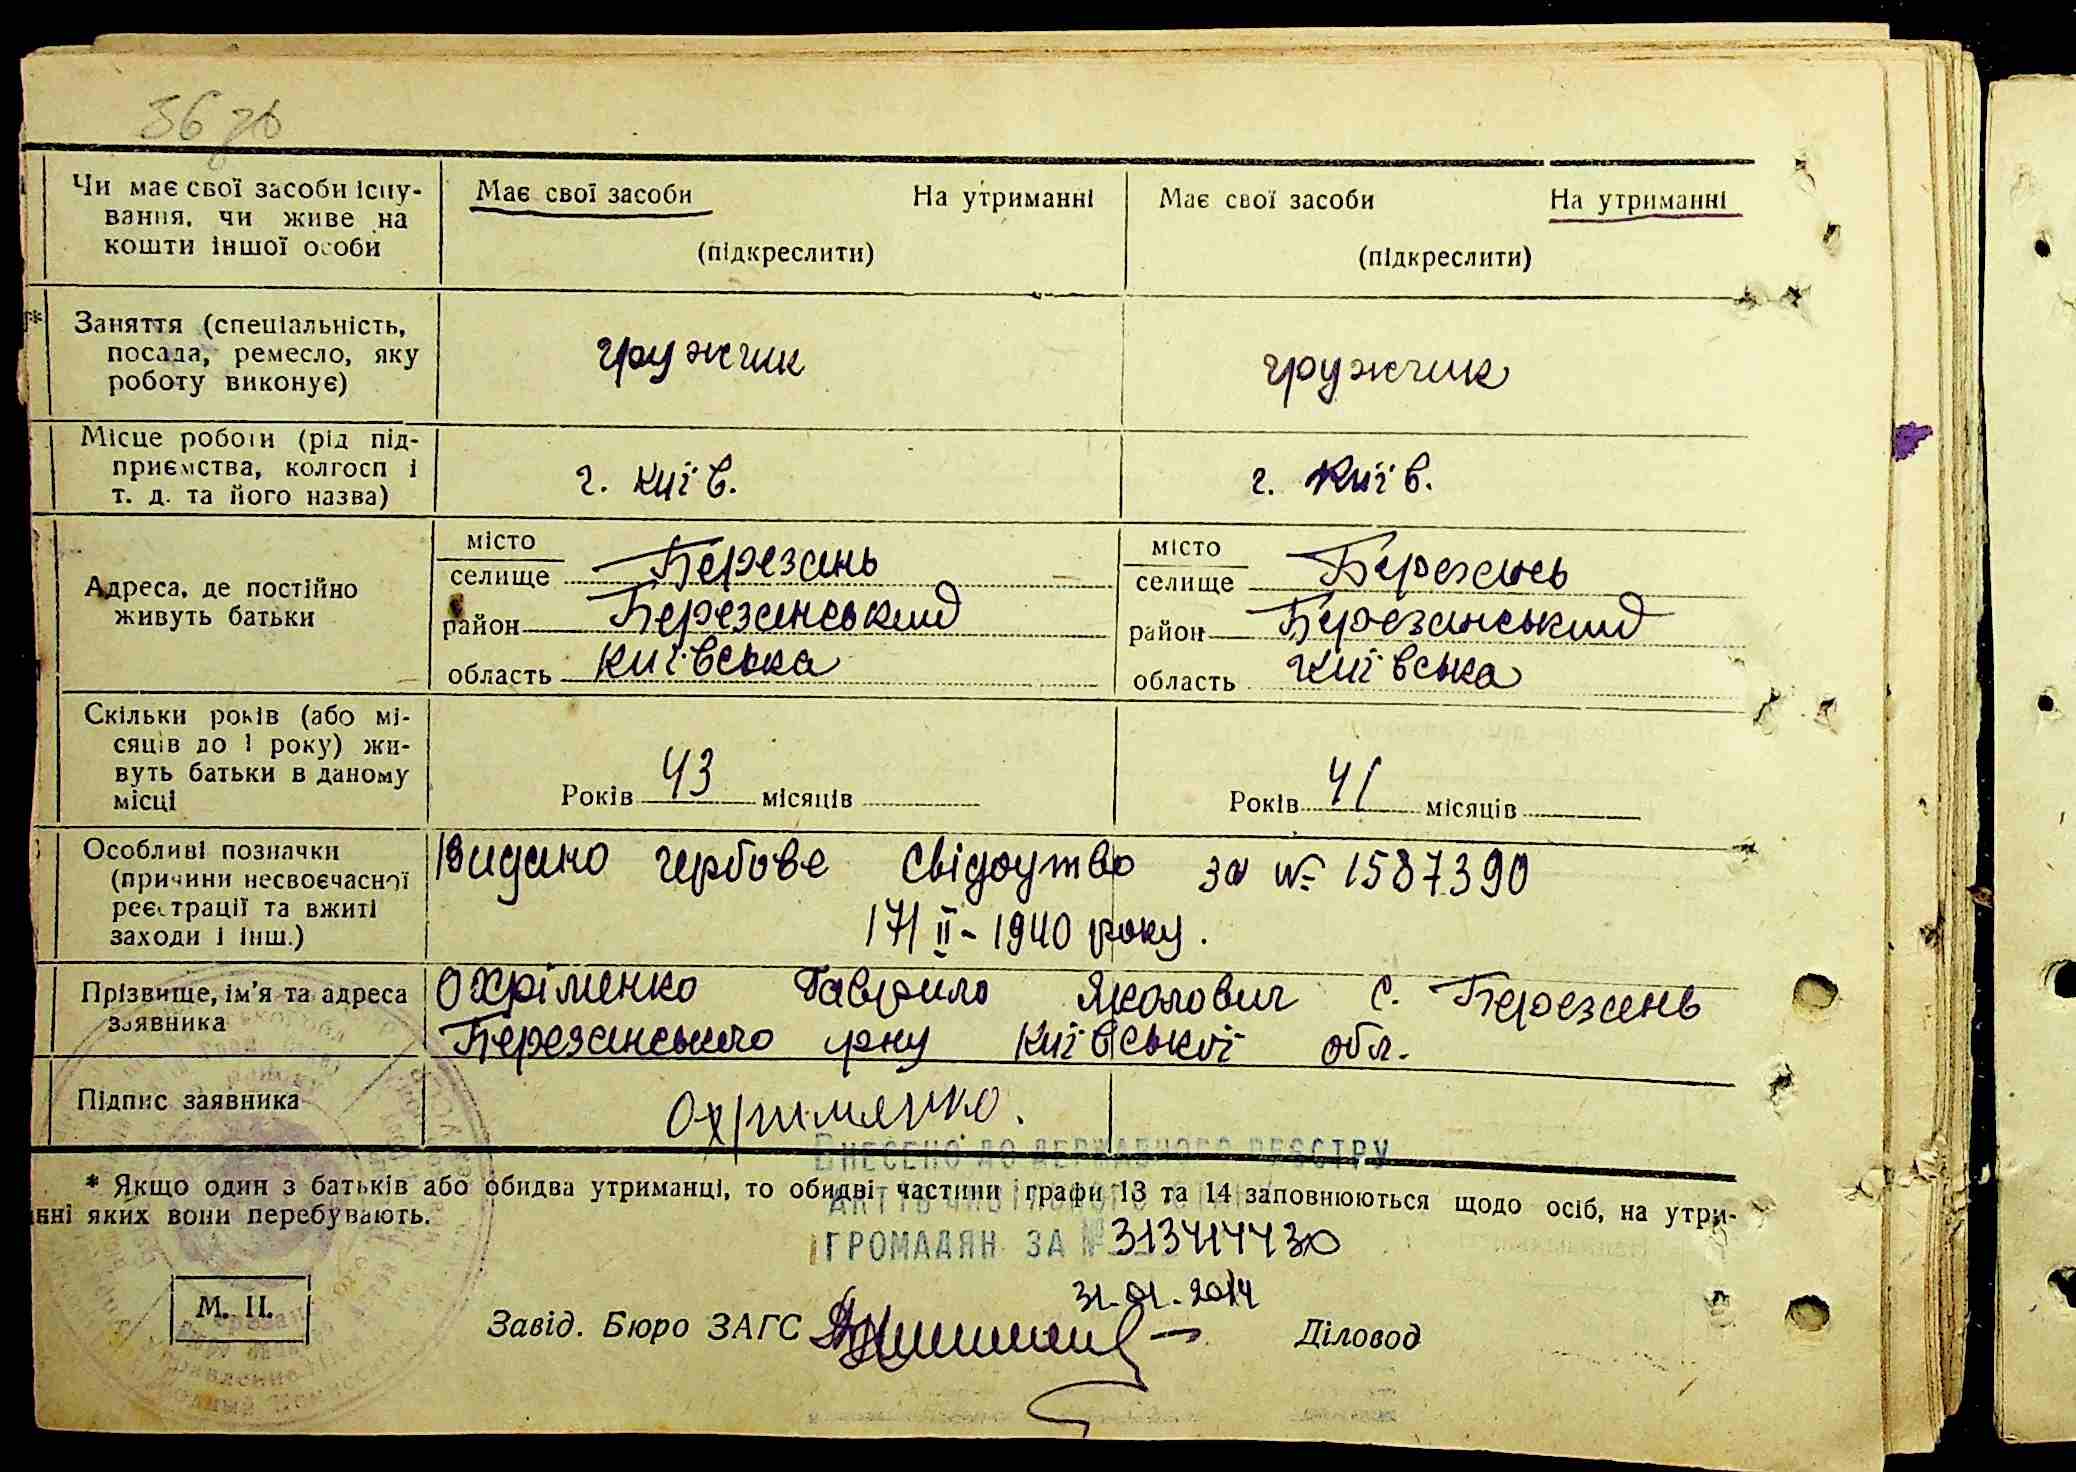 36 зв
Чи має свої засоби існу-
вання, чи живе на
кошти іншої особи
Має свої засоби На утриманні
(підкреслити)
Має свої засоби На утриманні
(підкреслити)
Заняття (спеціальність,
посада, ремесло, яку
роботу виконує)
грузчик
грузчик
Місце роботи (рід під-
приємства, колгосп і
т. д. та його назва)
г. Київ.
г. Київ.
Адреса, де постійно
живуть батьки
місто
селище Березань
район Березанський
область Київська
місто
селище Березань
район Березанський
область Київська
Скільки років (або мі-
сяців до 1 року) жи-
вуть батьки в даному
місці
Років 43 місяців
Років 41 місяців
Особливі позначки
(причини несвоєчасної
реєстрації та вжиті
заходи і інш.)
Видано гербове свідоутво за № 1587390
17/II-1940 року.
Прізвище, ім'я та адреса
заявника
Охріменко Гаврило Яколович с. Березань
Березанського рну Київської обл.
Підпис заявника
Охримянко.
Внесено до державного реєстру
актів цивільного стану
громадян за № 313414430
31.01.2014
* Якщо один з батьків або обидва утриманці, то обидві частини графи 13 та 14 заповнюються щодо осіб, на утри-
нні яких вони перебувають.
М. П.
Завід. Бюро ЗАГС
Діловод